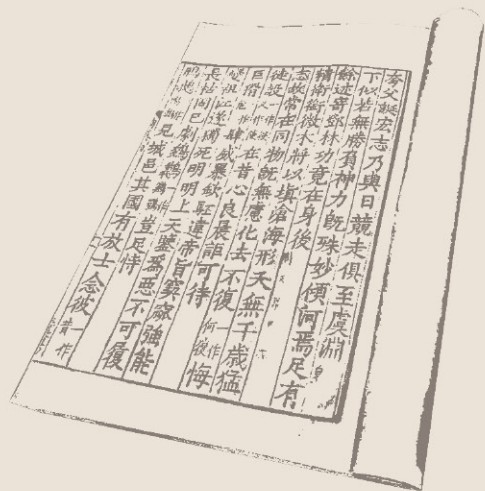 夸父誕宏志乃與日競走俱至虞淵
下似若無勝負神力既殊妙傾河焉足有
餘迹寄鄧林功竟在身後
精衛銜微木將以填滄海形夭無千歲猛
志故常在同物既無慮化去不復悔
徒設在昔心良晨詎可待
巨猾肆威暴欽駓違帝旨窫窳強能
變祖江遂獨死明明上天鑒為惡不可履
長枯固已劇鵕鶚豈足恃
見城邑其國有放士念彼一作